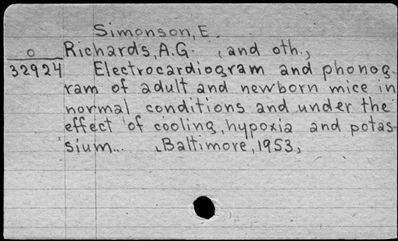 Simonson, E.
O Richards, A.G. , and oth.,
32924 Electrocardiogram and phonog-
ram of adult and newborn mice in
normal conditions and under the
effect of cooling, hypoxia and potas-
sium... , Baltimore, 1953,